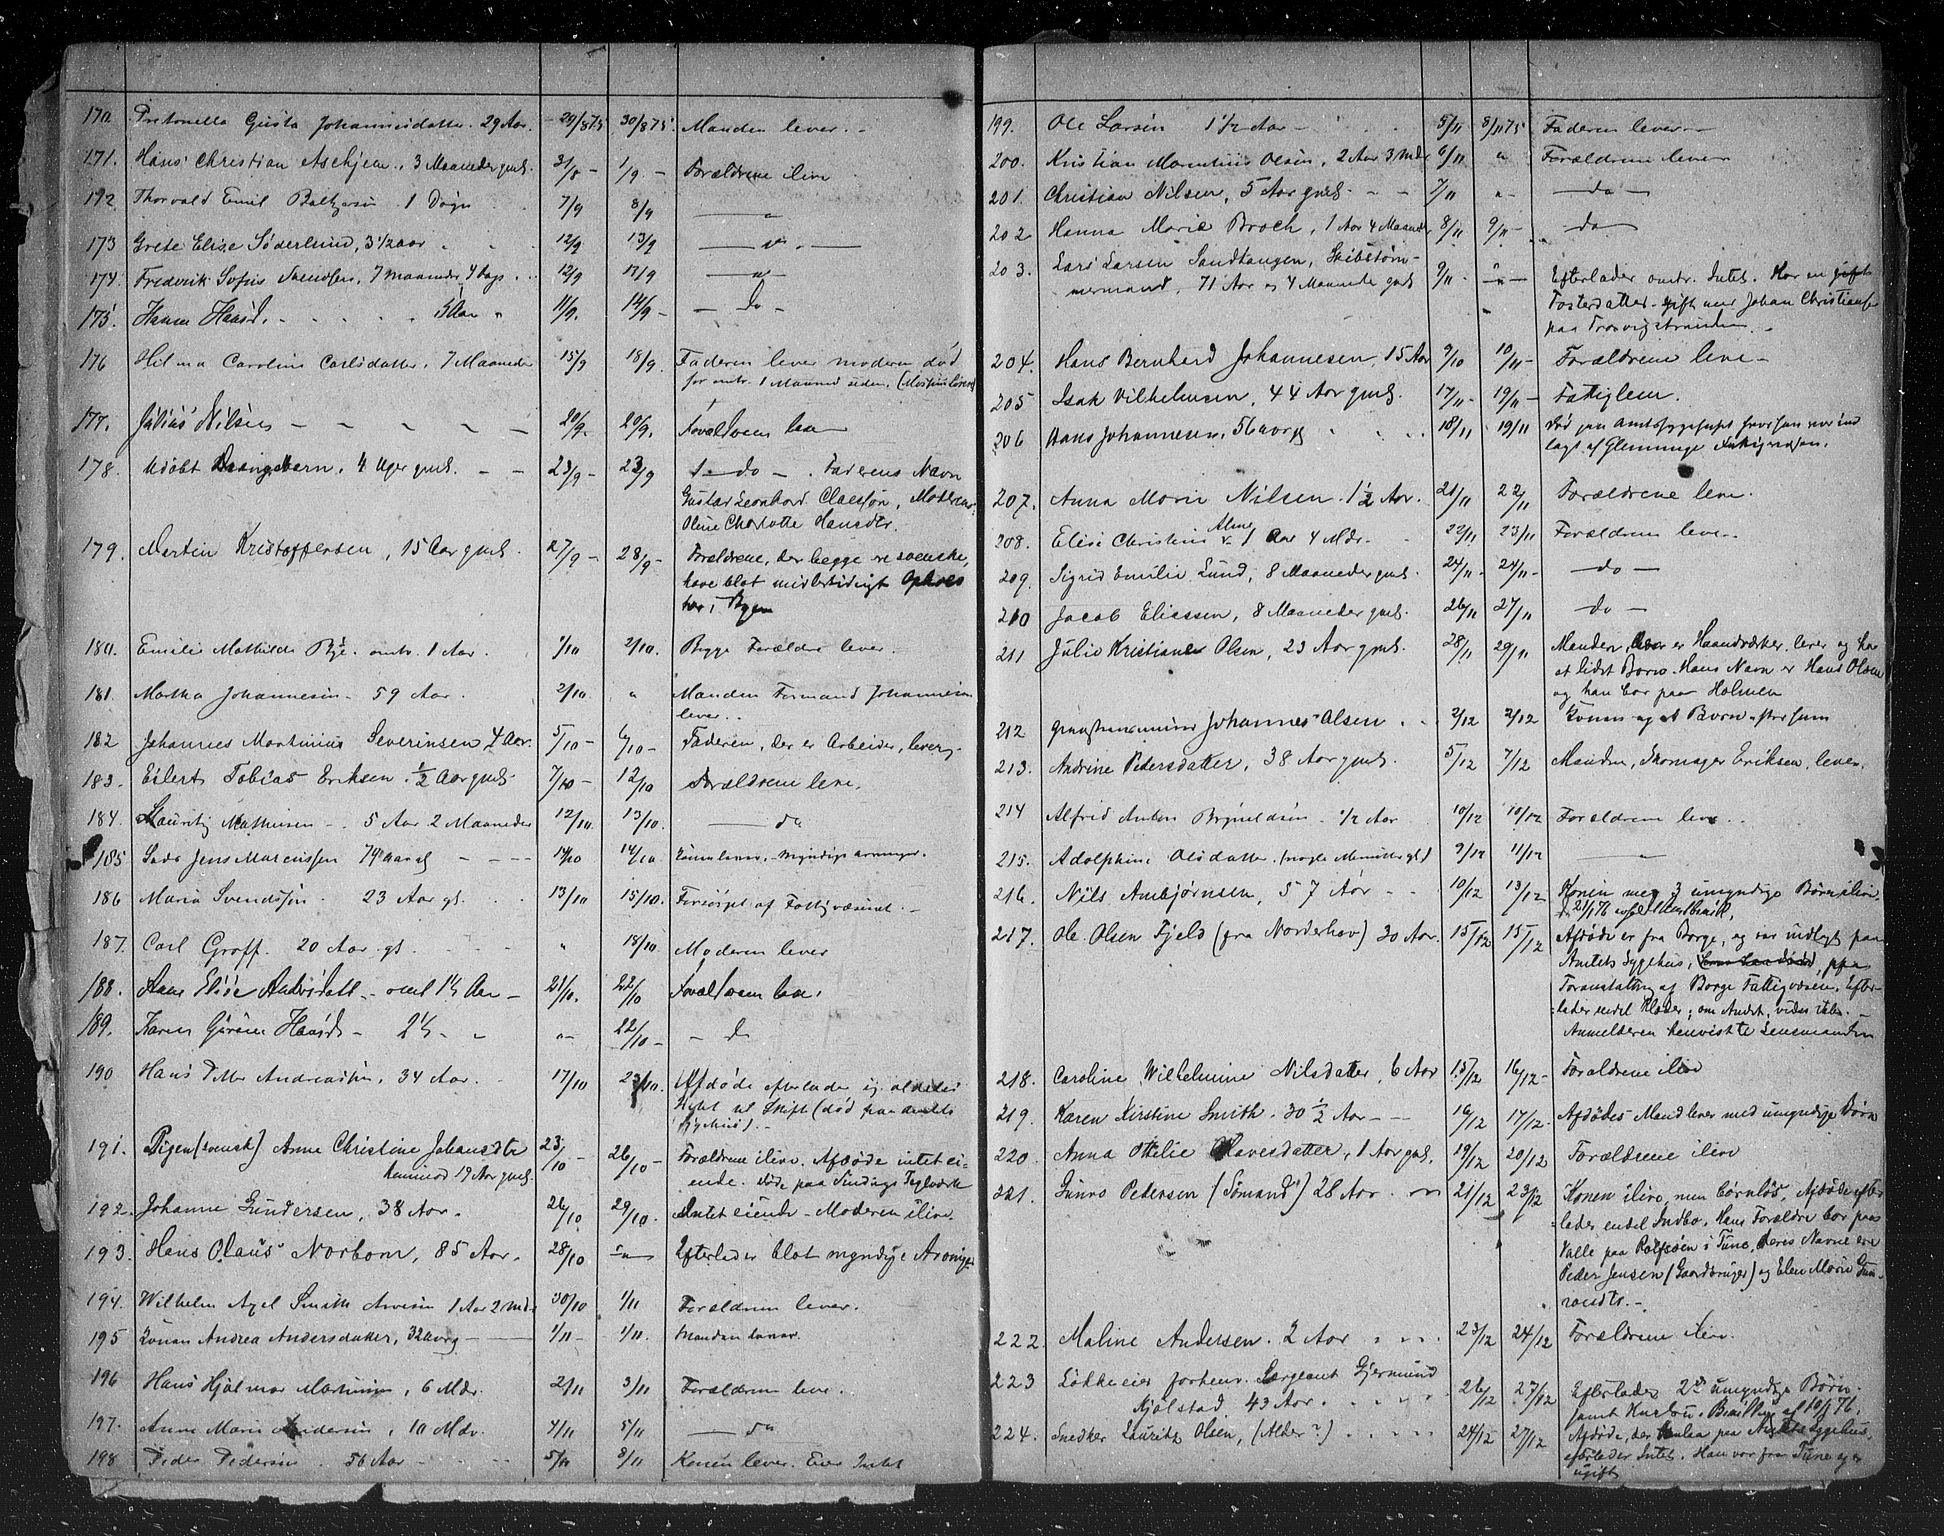 170. Petronella Gusta Johannesdatter 29 Aar. 29/8 75 30/8 75 Manden lever. -
171. Hans Christian Aschjem, 3 Maaneder gml. 31/8 - 1/9 - Forældrene ilive
192. Thorvald Emil Baltzersøn 1 Døgn 7/9 8/9 — " —
173 Grete Elise Söderlund, 3 1/2 aar 12/9 13/9 — " —
174. Fredrik Sofus Svendsen, 7 maaneder 4 Dage 12/9 17/9 — " —
175. 11/9. 14/9 - — Do —
176 Hilma Caroline Carlsdatter, 7 Maaneder 15/9 18/9. Faderen lever moderen død
for omtr. 1 Maaned siden.
177. Julius Nilsen 20/9. 20/9.
178. Udöbt 4 Uger gml. 23/9 - 23/9 — do — Faderens Navn
Gustav Leonhard Claessøn, Moderens
Oline Charlotte Hansdtr.
179. Martin Kristoffersen, 15 Aar gml. 27/9 - 28/9 - Forældrene, der begge ere svenske,
have blot midlertidigt Ophold
her i Byen
180. Emilie Mathilde Bye. omtr. 1 Aar. 1/10 2/10. Begge Forældre lever.
181. Martha Johannesen - 59 Aar. 2/10. " Manden Formand Johannesen
lever..
182 Johannes Martinius Severinsen 4 Aar. 5/10 - 6/10 - Faderen, der er Arbeider, lever
183. Eilert Tobias Eriksen. 1/2 Aar gml. 7/10 - 12/10 Forældrene leve.
184. Lauritz Mathisen - . 5 Aar 2 Maaneder 12/10 13/10. — do
185 Jens Marcussen 74 aar gl 14/10 14/10 myndige arvinger.
186 Maria Svendsføn. 23 Aar gl. 13/10 15/10. Forsörget af Fattigvæsenet. -
187. Carl Groff. 20 Aar gl. " 18/10. Moderen lever
188. omt 1 1/2 Aar - 21/10. 22/10
189. Karen 2 1/2 " " 22/10 - - do
190 Hans Petter Andreassen, 34 Aar. 17/10 23/10. Afdøde efterlader ig aldeles
Intet til Skifte (død paa amtets
sygehus). -
191. Pigen (svensk) Anne Christine Johansdtr. 23/10 - 26/10 - Forældrene ilive. Afdøde intet ei-
19 Aar gml. ende. døde paa Teglværk
192. Johanne Gundersen, 38 Aar. 26/10 29/10. Intet eiende - Moderen ilive.
193. Hans Olaus Norbom, 85 Aar. 28/10 — " — Efterlader blot myndige Arvinger
194. Wilhelm Axel Smith 1 Aar 2 Mdr 30/10 1/11 Forældrene lever.
195 Andrea Andersdatter, 32 aar g 1/11 - 1/11. Manden lever.
196 Hans Hjalmar Martinsen, 6 Mdr. 2/11 3/11 Forældrene leve.
197. Anne Marie Andersen, 10 Mdr. 4/11 5/11 — do
198 Peder Pedersen. 56 Aar 5/11 8/11 Konen lever. Eier Intet
199. Ole Larsen 1 1/2 Aar 5/11 8/11 75 Faderen lever -
200. Kristian Martinius Olsen, 2 Aar 3 Mdr 6/11 " Forældrene leve -
201. Christian Nilsen, 5 Aar gml. 7/11 " — do —
202 Hanna Marie Broch, 1 Aar 4 Maaneder 8/11 9/11 - do —
203. Lars Larsen Sandtangen, Skibstøm-
mermand, 71 Aar og 4 Maaneder gml 9/11 - — " — Efterlader omtr. Intet. Har en gift
Fosterdatter - gift med Johan Christiansen
paa Trosvigstranden. -
204. Hans Bernherd Johannesen, 15 Aar 9/10 10/11 - Forældrene leve -
205 Isak Vilhelmsen, 44 Aar gml. 17/11 - 19/11 - Fattiglem.
206 Hans Johannesen, 56 aar g 18/11 19/11 Død paa Amtssygehuset hvor han var ind
lagt af Glemminge Fattigvæsen.
207. Anna Marie Nilsen. 1 1/2 Aar. 21/11 22/11 Forældrene leve.
208. Elise Christine Alme 1 Aar 4 Mdr. 22/11 23/11 Forældrene leve..
209. Sigrid Emilie Lund, 8 Maaneder gml. 24/11 - 24/11 - — do —
210 Jacob Eliassen, 8 Maaneder gml. 26/11 27/11 do —
211 Julie Kristiane Olsen, 23 Aar gml. 28/11 29/11 Manden, er Haandværker, lever og har
et lidet Barn. Hans Navn er Hans Olsen
og han bor paa Holmen
212 Johannes Olsen 2/12 2/12 Konen og et Barn efter ham
213. Andrine Pedersdatter, 38 Aar gml. 5/12 7/12 Manden, Skomager Eriksen, lever.
214 Alfrid Anton Brynildsen - 1/2 Aar 10/12 10/12 Forældrene leve..
215. Adolphine Olsdatter (nogle Minutter gl) 9/12 11/12 — " —
216. Nils Ambjørnsen, 57 Aar 10/12 13/12 Konen med 3 umyndige Børn ilive
217. Ole Olsen Fjeld (fra Norderhov) 30 Aar. 15/12 15/12 Afdøde er fra Borge, og var indlagt paa
Amtets Sygehus, paa
Foranstaltning af Borge Fattigvæsen. Efter-
lader endel Klæder; om Andet, vides ikke. -
Anmelderen henviste til Lensmanden
218. Caroline Wilhelmine Nilsdatter, 6 Aar 15/12 16/12 - Forældrene ilive
219. Karen Kirstine Smith. 30 1/2 Aar - - 16/12 17/12. Afdødes Mand lever med umyndige Børn
220. Anna Ottilie Olavesdatter, 1 Aar gml. 19/12 20/12 Forældrene ilive
221. Gunro Pedersen (Sömand) 28 Aar. 21/12 23/12 Konen ilive, men børnløs, Afdøde efter-
lader endel Indbo. Hans Forældre bor paa
Valle paa Rolfsøen i Tune, deres Navne ere
Peder Jensen (Gaardbruger) og Elen Marie Gun-
rosdtr. -
222. Maline Andersen. 2 Aar 23/12 24/12 Forældrene ilive.
223 Løkkeeier forhenv. Sergeant Gjermund
Kjølstad 43 Aar. 26/12 27/12 Efterlader 2de umyndige Børn
samt Hustru.
224. Snedker Lauritz Olsen, (Alder?) 24/12 27/12 Afdøde, der paa Amtets Sygehus,
efterlader Intet. Han var fra Tune og er
ugift